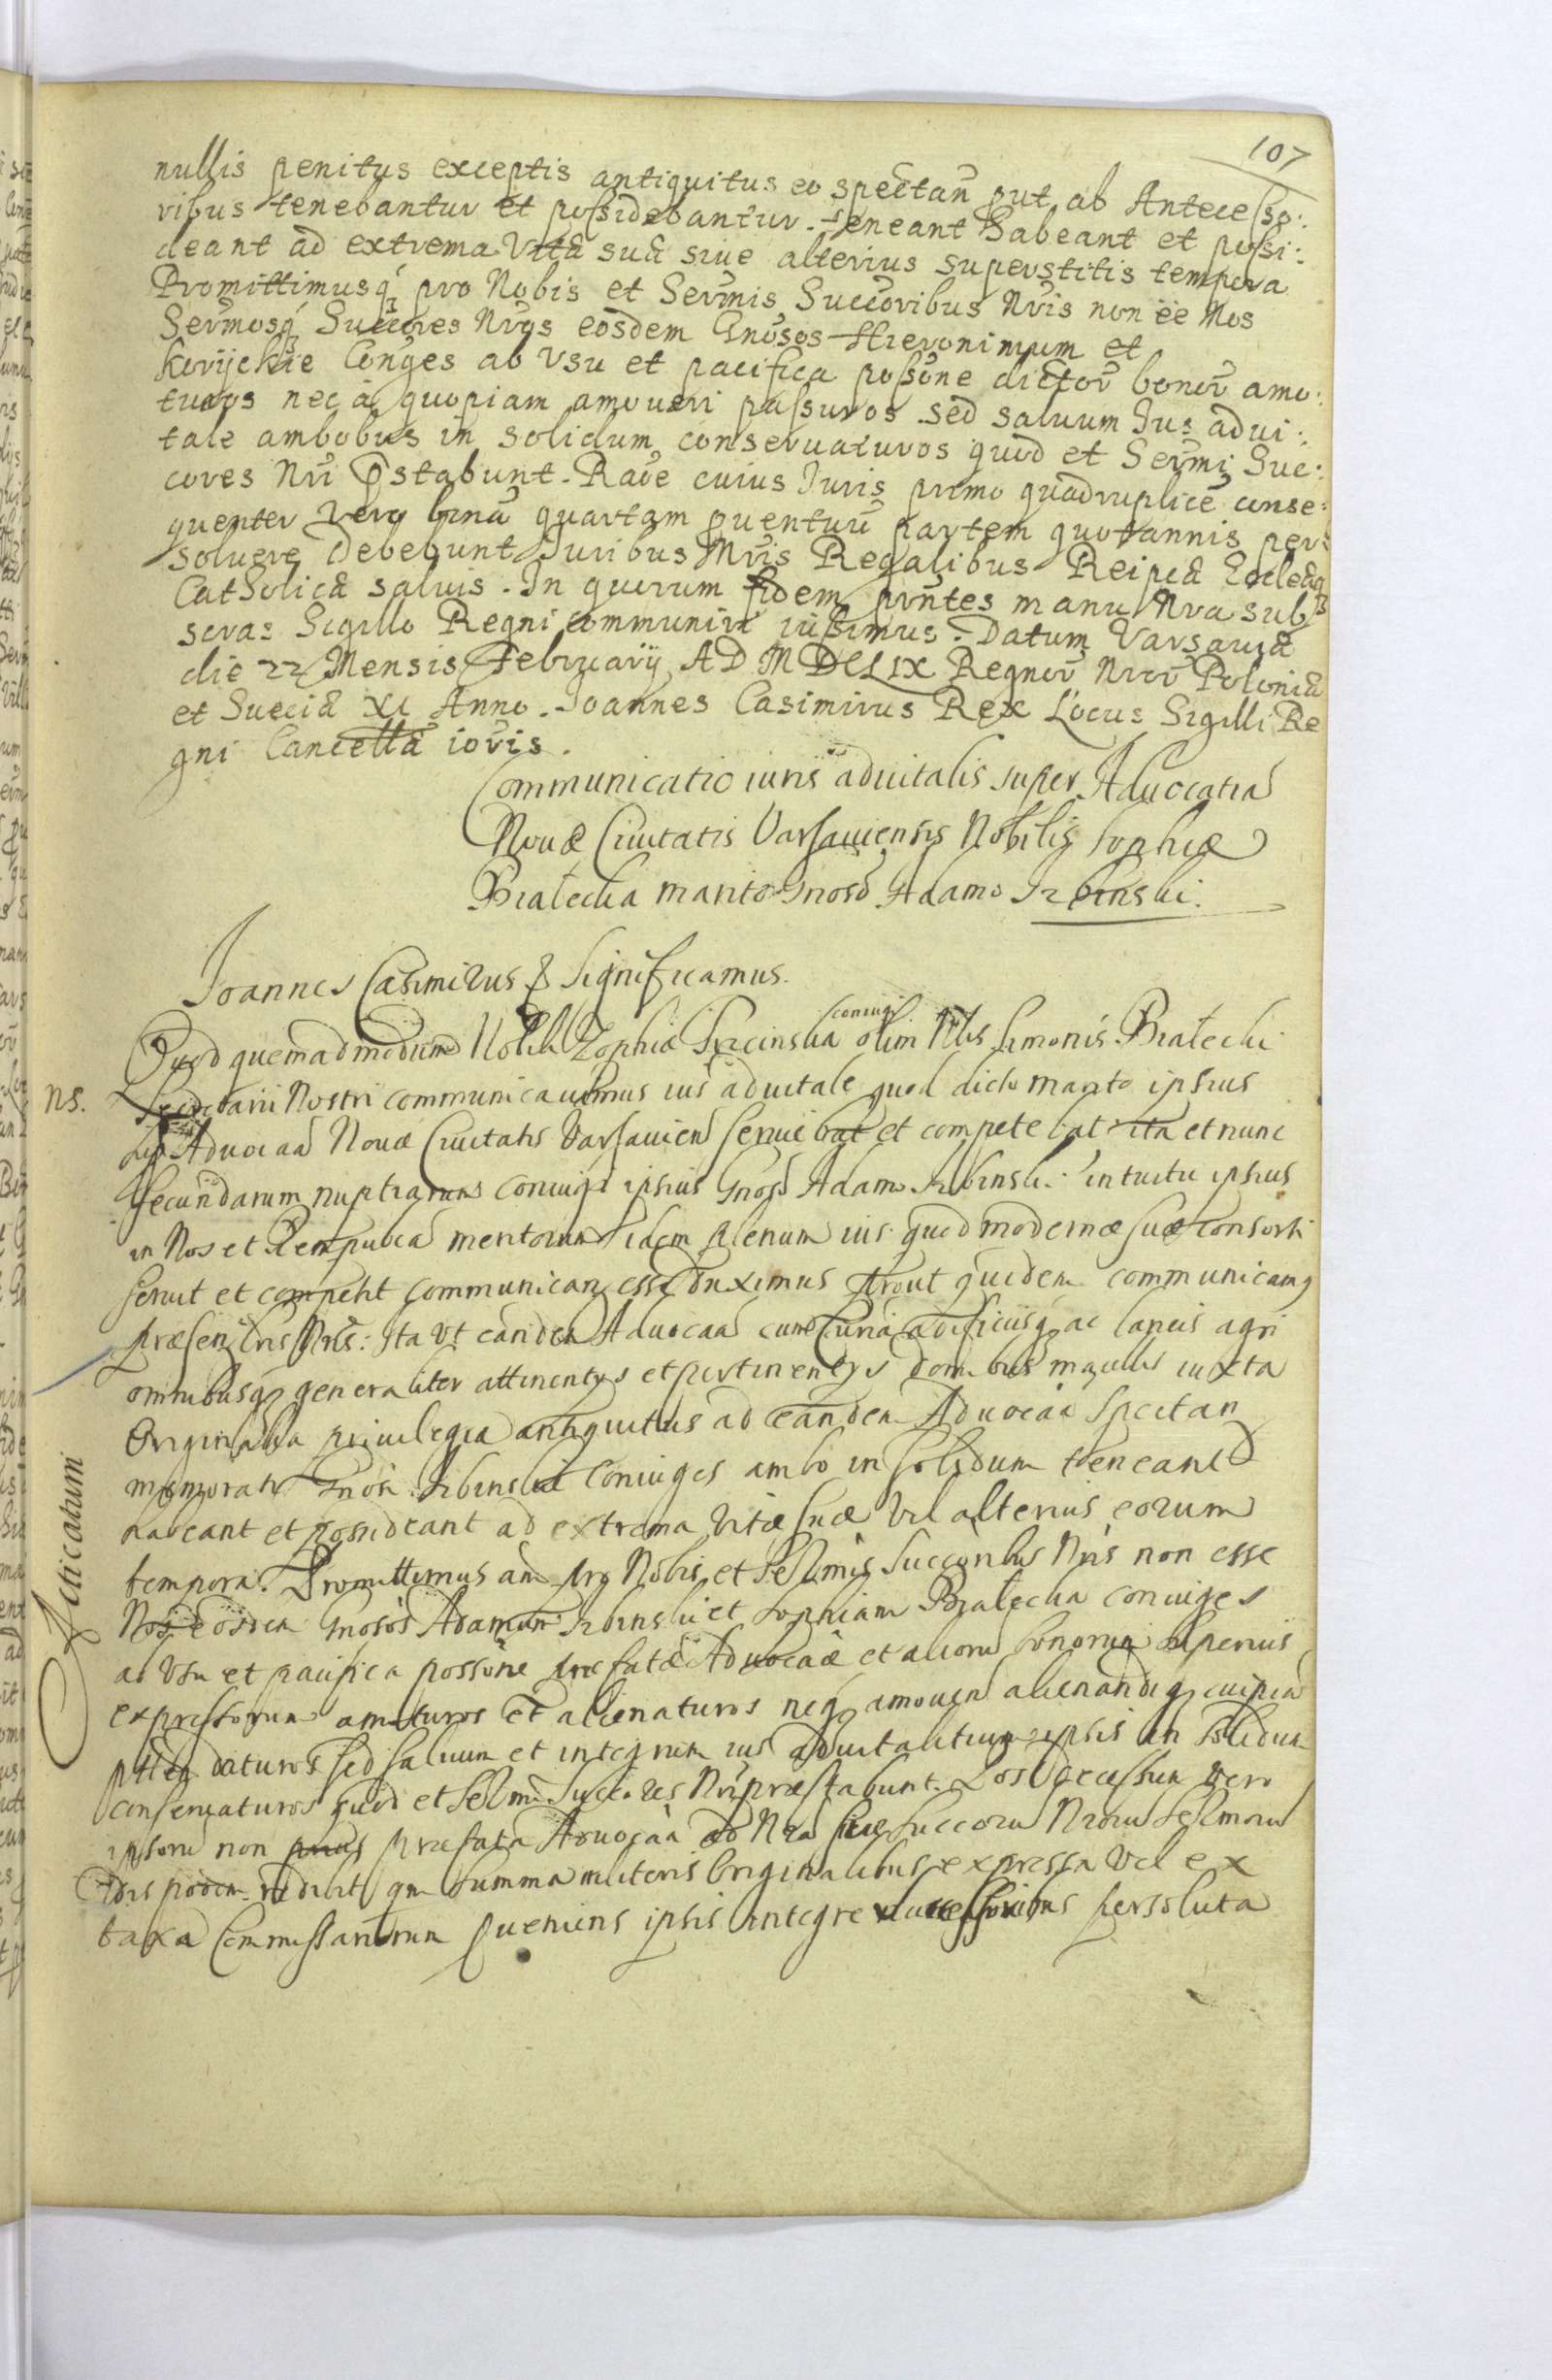 107
nullis penitus exceptis antiquitus eo spectañ put ab Antecesso:
ribus tenebantur et possidebantur. Teneant Habeant et possi:
deant ad extrema Vitæ suæ siue alterius superstitis tempora
Promittimusq́ pro Nobis et Serm̃is Succoribus Nr̃is non ẽe Nos
Serm̃osq́ Succores Nr̃os eosdem Gn̄osos Hieronimum et
Koryckie Conges ab Vsu et pacifica possõne dictoṝ bonoṝ amo:
turos nec à quopiam amoueri passuros sed saluum Jus adui:
tale ambobus in solidum conseruaturos quod et Serm̃i Suc:
cores Nr̃i Pstabunt. Raõe cuius Juris primo quadruplicẽ conse:
quenter vero binã quartam puentuũ partem quotannis per:
soluere debebunt Juribus Nr̃is Regalibus Reipcæ Ecleæq
Catholicæ saluis. In quorum fidem pn̄tes manu Nra sub
scras Sigillo Regni communire iussimus. Datum Varsauiæ
die 22 Mensis Februarij AD MDCLIX Regnoṝ Nroṝ Poloniæ
et Sueciæ XI Anno. Joannes Casimirus Rex Locus Sigilli Re
gni Cancellæ ioris.
Communicatio iuris aduitalis super Aduocatia
Nouæ Ciuitatis Varsauiensis Nobilis Sophiæ
Bratecka marito Gnoso Adamo Srbinski.
Joannes Casimirus & Significamus.
coniugi
Quod quemadmodum Nobili Zophiæ olim Nlis Simonis Bratecki
NS. Secretarii Nostri communicauimus ius aduitale quod dicto marito ipsius
Aduocaã Nouæ Ciuitatis Varsauien seruiebat et competebat ita et nunc
secundarum nuptiarum coniugi ipsius Gnoso Adamo Srbinski intuitu ipsius
in Nos et Rempubcã meritorum idem plenum ius quod modernæ suæ consorti
seruit et competit communican esse duximus prout quidem communicamq
præsen lris Nris: Ita Vt eandem Aduocaã cum Curia ædificiisq ac laneis agri
omnibusq generaliter attinentys et pertinentys domibus iuxta
Originalia priuilegia antiquitus ad eandem Aduocaã Spectan
memorati Gnosi Srbinskie Coniuges ambo in solidum teneant
habeant et possideant ad extrema Vitæ suæ Vel alterius eorum
tempora. Promittimus aũ pro Nobis et Serm̃is Succoribus Nris non esse
Nos eosdem Gnosos Adamum Srbinski et Sophiam Bratecka coniuges
ab Vsu et pacifica possõne præfatæ Aduocaæ et aliorũ bonorum superius
expressorum amoturos et alienaturos neq amouen alienandiq cuipiã
daturos sed saluum et integrum ius aduitalitium ipsis in Solidum
conseruaturos quod et Serm̃i Succores Nri præstabunt. Post decessum vero
ipsorũ non prius præfata Aduocaã ad Nrã Succorũ Nrorũ Serm̃orũ
redibit qm Summa in literis Originalibus expressa Vel ex
taxa Commissariorum queniens ipsis integre successoribus persoluta
Acticatum